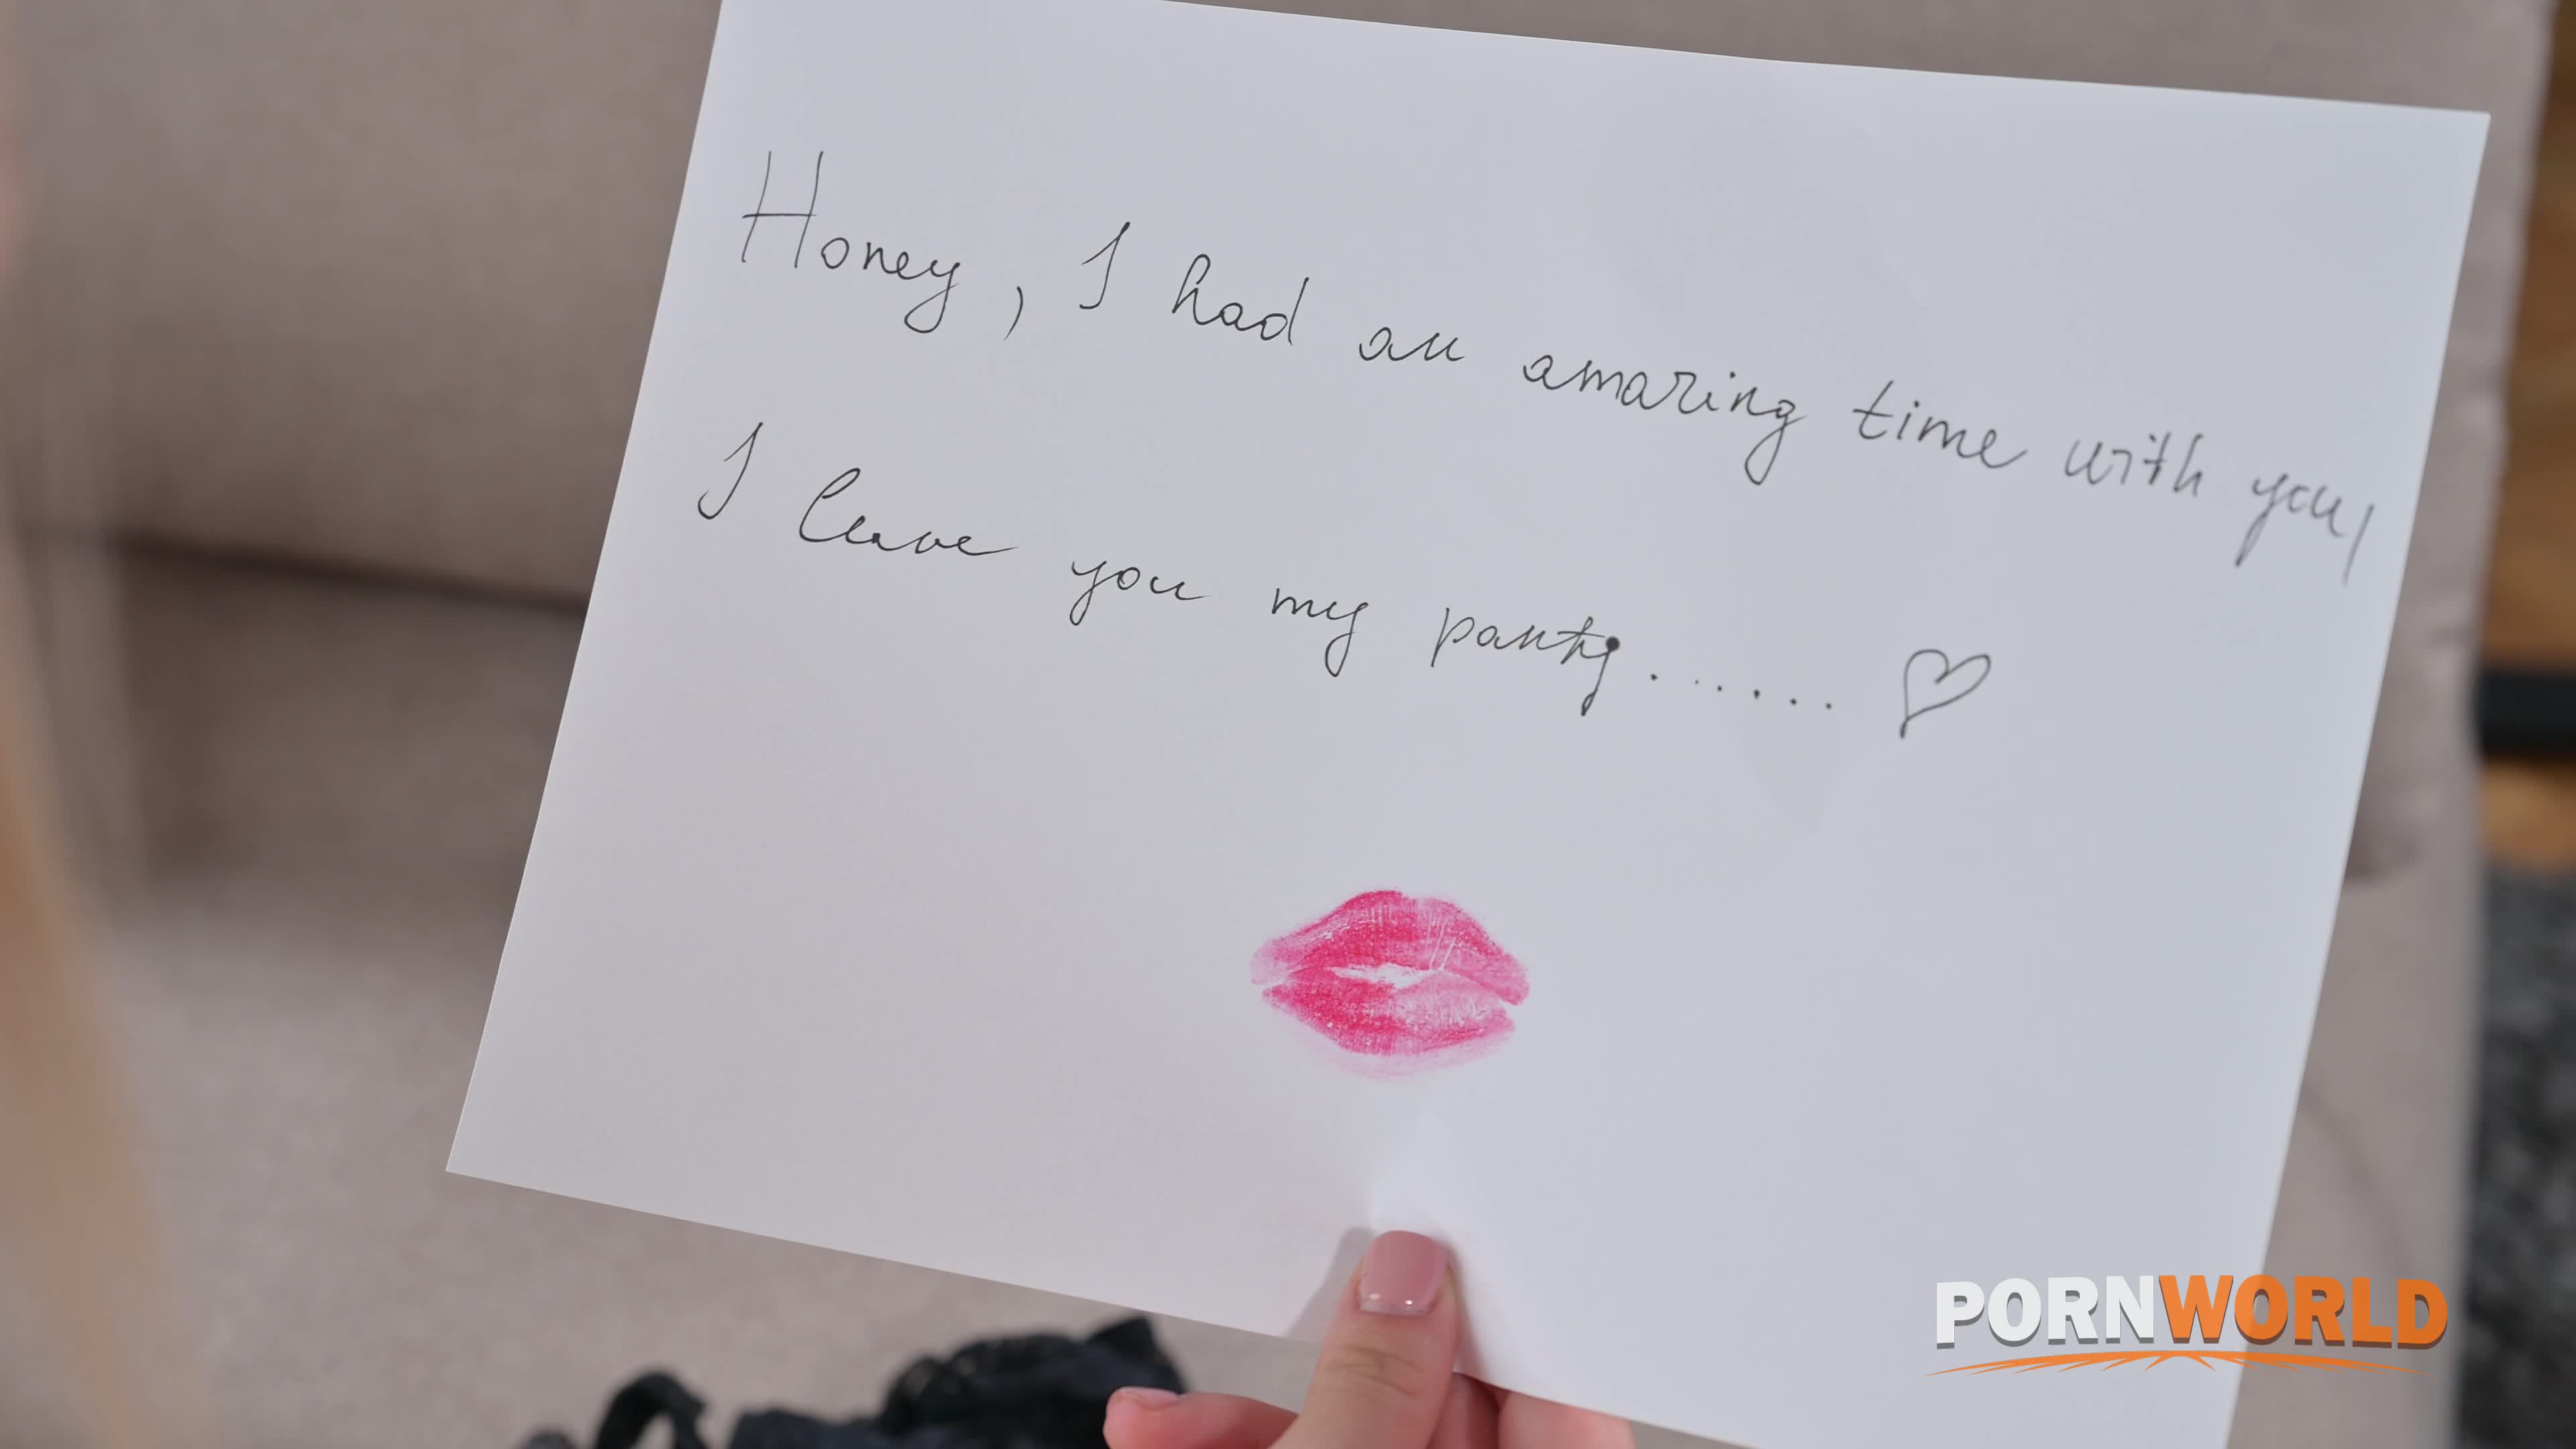 Honey, I had an amazing time with you!
I leave you my panty...... ♡
PORNWORLD